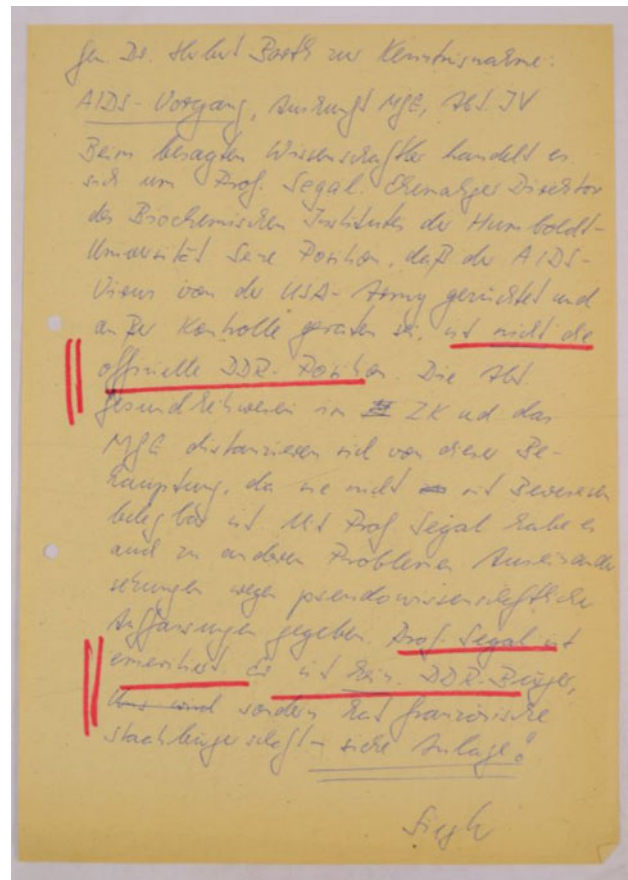 Gen. Dr. Hubert Barth zur Kenntnisnahme:
AIDS-Vorgang, Auskunft MfG, Abt. IV
Beim besagten Wissenschaftler handelt es
sich um Prof. Segal. Ehemaliger Direktor
des Biochemischen Instituts der Humboldt-
Universität. Seine Position, daß der AIDS-
Virus von der USA-Army gezüchtet und
außer Kontrolle geraten sei, ist nicht die
offizielle DDR-Position. Die Abt.
Gesundheitswesen im ZK und das
MfG distanzieren sich von dieser Be-
hauptung, da sie nicht mit Beweisen
belegbar ist. Mit Prof. Segal habe es
auch zu anderen Problemen Auseinander
setzungen wegen pseudowissenschaftlicher
Auffassungen gegeben. Prof. Segal ist
emeritiert. Er ist kein DDR-Bürger,
sondern hat französische
Staatsbürgerschaft – siehe Anlage!